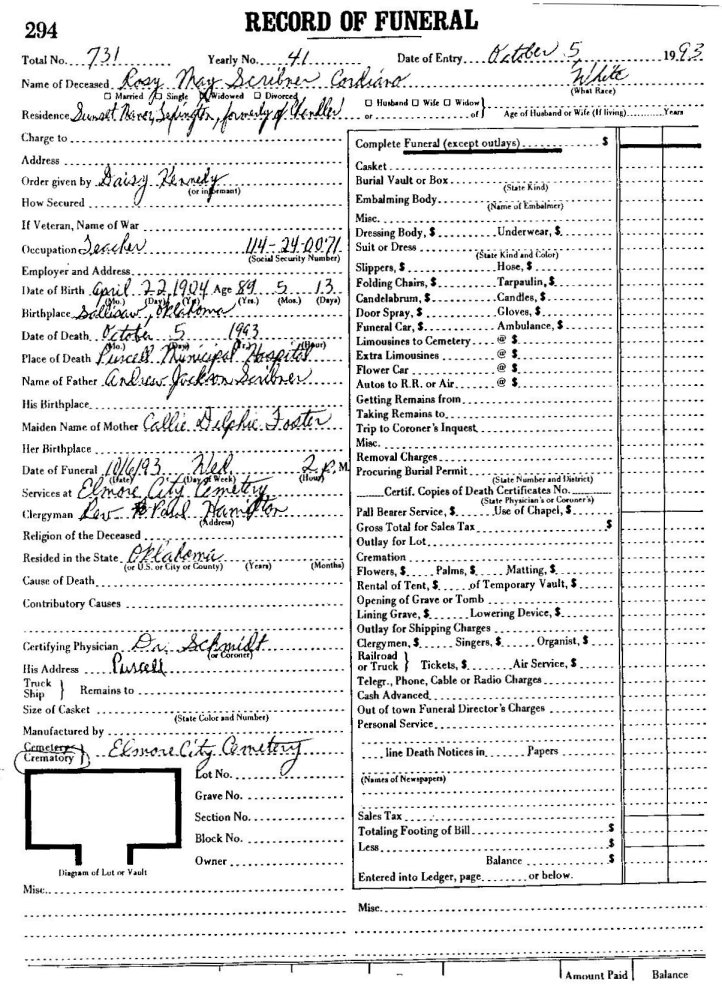 294 RECORD OF FUNERAL
Total No. 731 Yearly No. 41 Date of Entry October 5 1993
Name of Deceased Rosy May Scribner Cordiano White
(What Race)
☐ Married ☐ Single ☒ Widowed ☐ Divorced
Residence Sunset Manor, Lexington, formerly of Chandler
☐ Husband ☐ Wife ☐ Widow } Age of Husband or Wife (If living) Years
or of
Charge to
Address
Order given by Daisy Kennedy
(or informant)
How Secured
If Veteran, Name of War
Occupation Teacher 114-24-0071
(Social Security Number)
Employer and Address
Date of Birth April 22, 1904 Age 89 5 13
(Mo.) (Day) (Yr.) (Yrs.) (Mos.) (Days)
Birthplace Sallisaw, Oklahoma
Date of Death October 5 1993
(Mo.) (Day) (Yr.) (Hour)
Place of Death Purcell Municipal Hospital
Name of Father Andrew Jackson Scribner
His Birthplace
Maiden Name of Mother Callie Delphie Foster
Her Birthplace
Date of Funeral 10/6/93 Wed 2 P.M.
(Date) (Day of Week) (Hour)
Services at Elmore City Cemetery
Clergyman Rev Paul Hamilton
(Address)
Religion of the Deceased
Resided in the State Oklahoma
(or U.S. or City or County) (Years) (Months)
Cause of Death
Contributory Causes
Certifying Physician Dr. Schmidt
(or Coroner)
His Address Purcell
Truck
Ship } Remains to
Size of Casket
(State Color and Number)
Manufactured by
Cemetery
Crematory } Elmore City Cemetery
Lot No.
Grave No.
Section No.
Block No.
Owner
Diagram of Lot or Vault
Misc.
Complete Funeral (except outlays) $
Casket
Burial Vault or Box
(State Kind)
Embalming Body
(Name of Embalmer)
Misc.
Dressing Body, $ Underwear, $
Suit or Dress
(State Kind and Color)
Slippers, $ Hose, $
Folding Chairs, $ Tarpaulin, $
Candelabrum, $ Candles, $
Door Spray, $ Gloves, $
Funeral Car, $ Ambulance, $
Limousines to Cemetery @ $
Extra Limousines @ $
Flower Car @ $
Autos to R.R. or Air @ $
Getting Remains from
Taking Remains to
Trip to Coroner's Inquest
Misc.
Removal Charges
Procuring Burial Permit
(State Number and District)
Certif. Copies of Death Certificates No.
(State Physician's or Coroner's)
Pall Bearer Service, $ Use of Chapel, $
Gross Total for Sales Tax $
Outlay for Lot
Cremation
Flowers, $ Palms, $ Matting, $
Rental of Tent, $ of Temporary Vault, $
Opening of Grave or Tomb
Lining Grave, $ Lowering Device, $
Outlay for Shipping Charges
Clergymen, $ Singers, $ Organist, $
Railroad
or Truck } Tickets, $ Air Service, $
Telegr., Phone, Cable or Radio Charges
Cash Advanced
Out of town Funeral Director's Charges
Personal Service
line Death Notices in Papers
(Names of Newspapers)
Sales Tax
Totaling Footing of Bill $
Less $
Balance $
Entered into Ledger, page or below.
Misc.
Amount Paid Balance